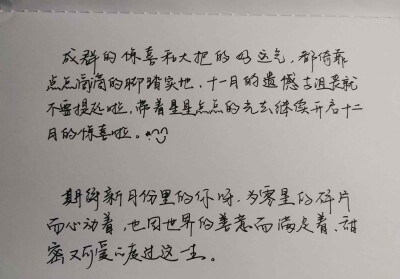 成群的惊喜和大把的好运气，都倚靠
点点滴滴的脚踏实地，十一月的遗憾与沮丧就
不要提起啦，带着星星点点的光去继续开启十二
月的惊喜啦。
期待新月份里的你呀，为零星的碎片
而心动着，也因世界的善意而满足着、甜
蜜又可爱的度过这一生。